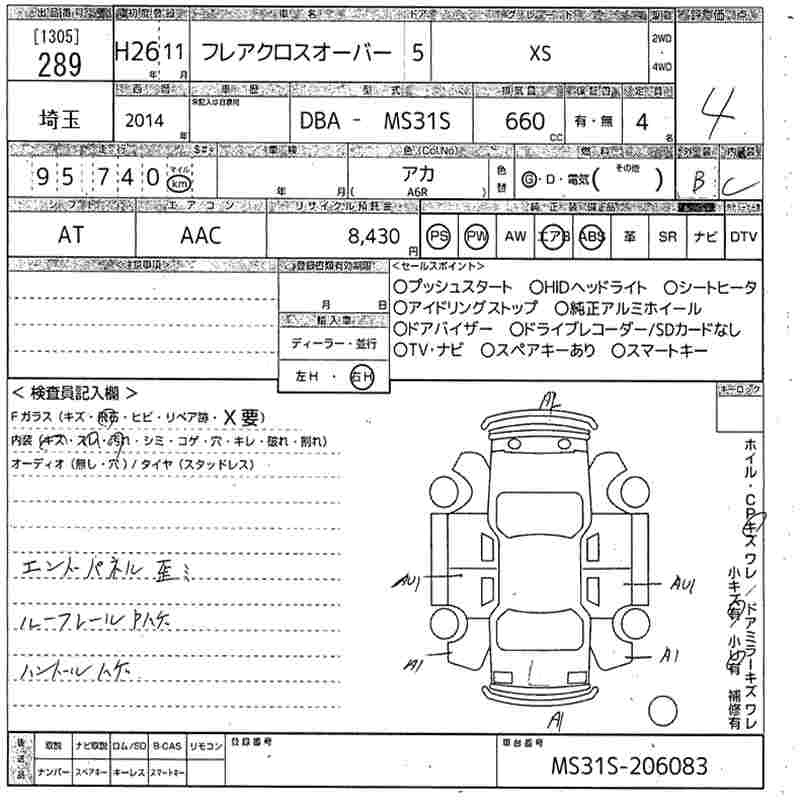 出品番号 初度登録 車名 ドア グレード 駆動 評価点
[1305] 289 H26年 11月 フレアクロスオーバー 5 XS 2WD・4WD 4
埼玉 西暦 車歴 型式 排気量 保証書 定員
2014年 DBA - MS31S 660cc 有・無 4名
走行 S#* 車検 色(Col.No) 燃料 外装 内装
95740 マイル km 年 月 アカ (A6R) 色替 G・D・電気(その他) B C
シフト エアコン リサイクル預託金 純正装備品
AT AAC 8,430円 PS PW AW エアB ABS 革 SR ナビ DTV
<注意事項> 登録書類有効期限 <セールスポイント>
月 日
○プッシュスタート ○HIDヘッドライト ○シートヒータ
○アイドリングストップ ○純正アルミホイール
○ドアバイザー ○ドライブレコーダー/SDカードなし
○TV・ナビ ○スペアキーあり ○スマートキー
輸入車
ディーラー・並行
左H・右H
<検査員記入欄>
キーロック
Fガラス(キズ・飛石・ヒビ・リペア跡・X要)
内装(キズ・スレ・汚れ・シミ・コゲ・穴・キレ・破れ・割れ)
オーディオ(無し・穴)/タイヤ(スタッドレス)
エンドパネル 歪ミ
ルーフレール ハゲ
ハンドル ハゲ
AU1
AU1
A1
A1
A1
ホイル・CPキズワレ/ドアミラーキズワレ
小キズ有 小凹有 補修有
後送品 取説 ナビ取説 ロム/SD B-CAS リモコン 登録番号 車台番号
ナンバー スペアキー キーレス スマートキー
MS31S-206083